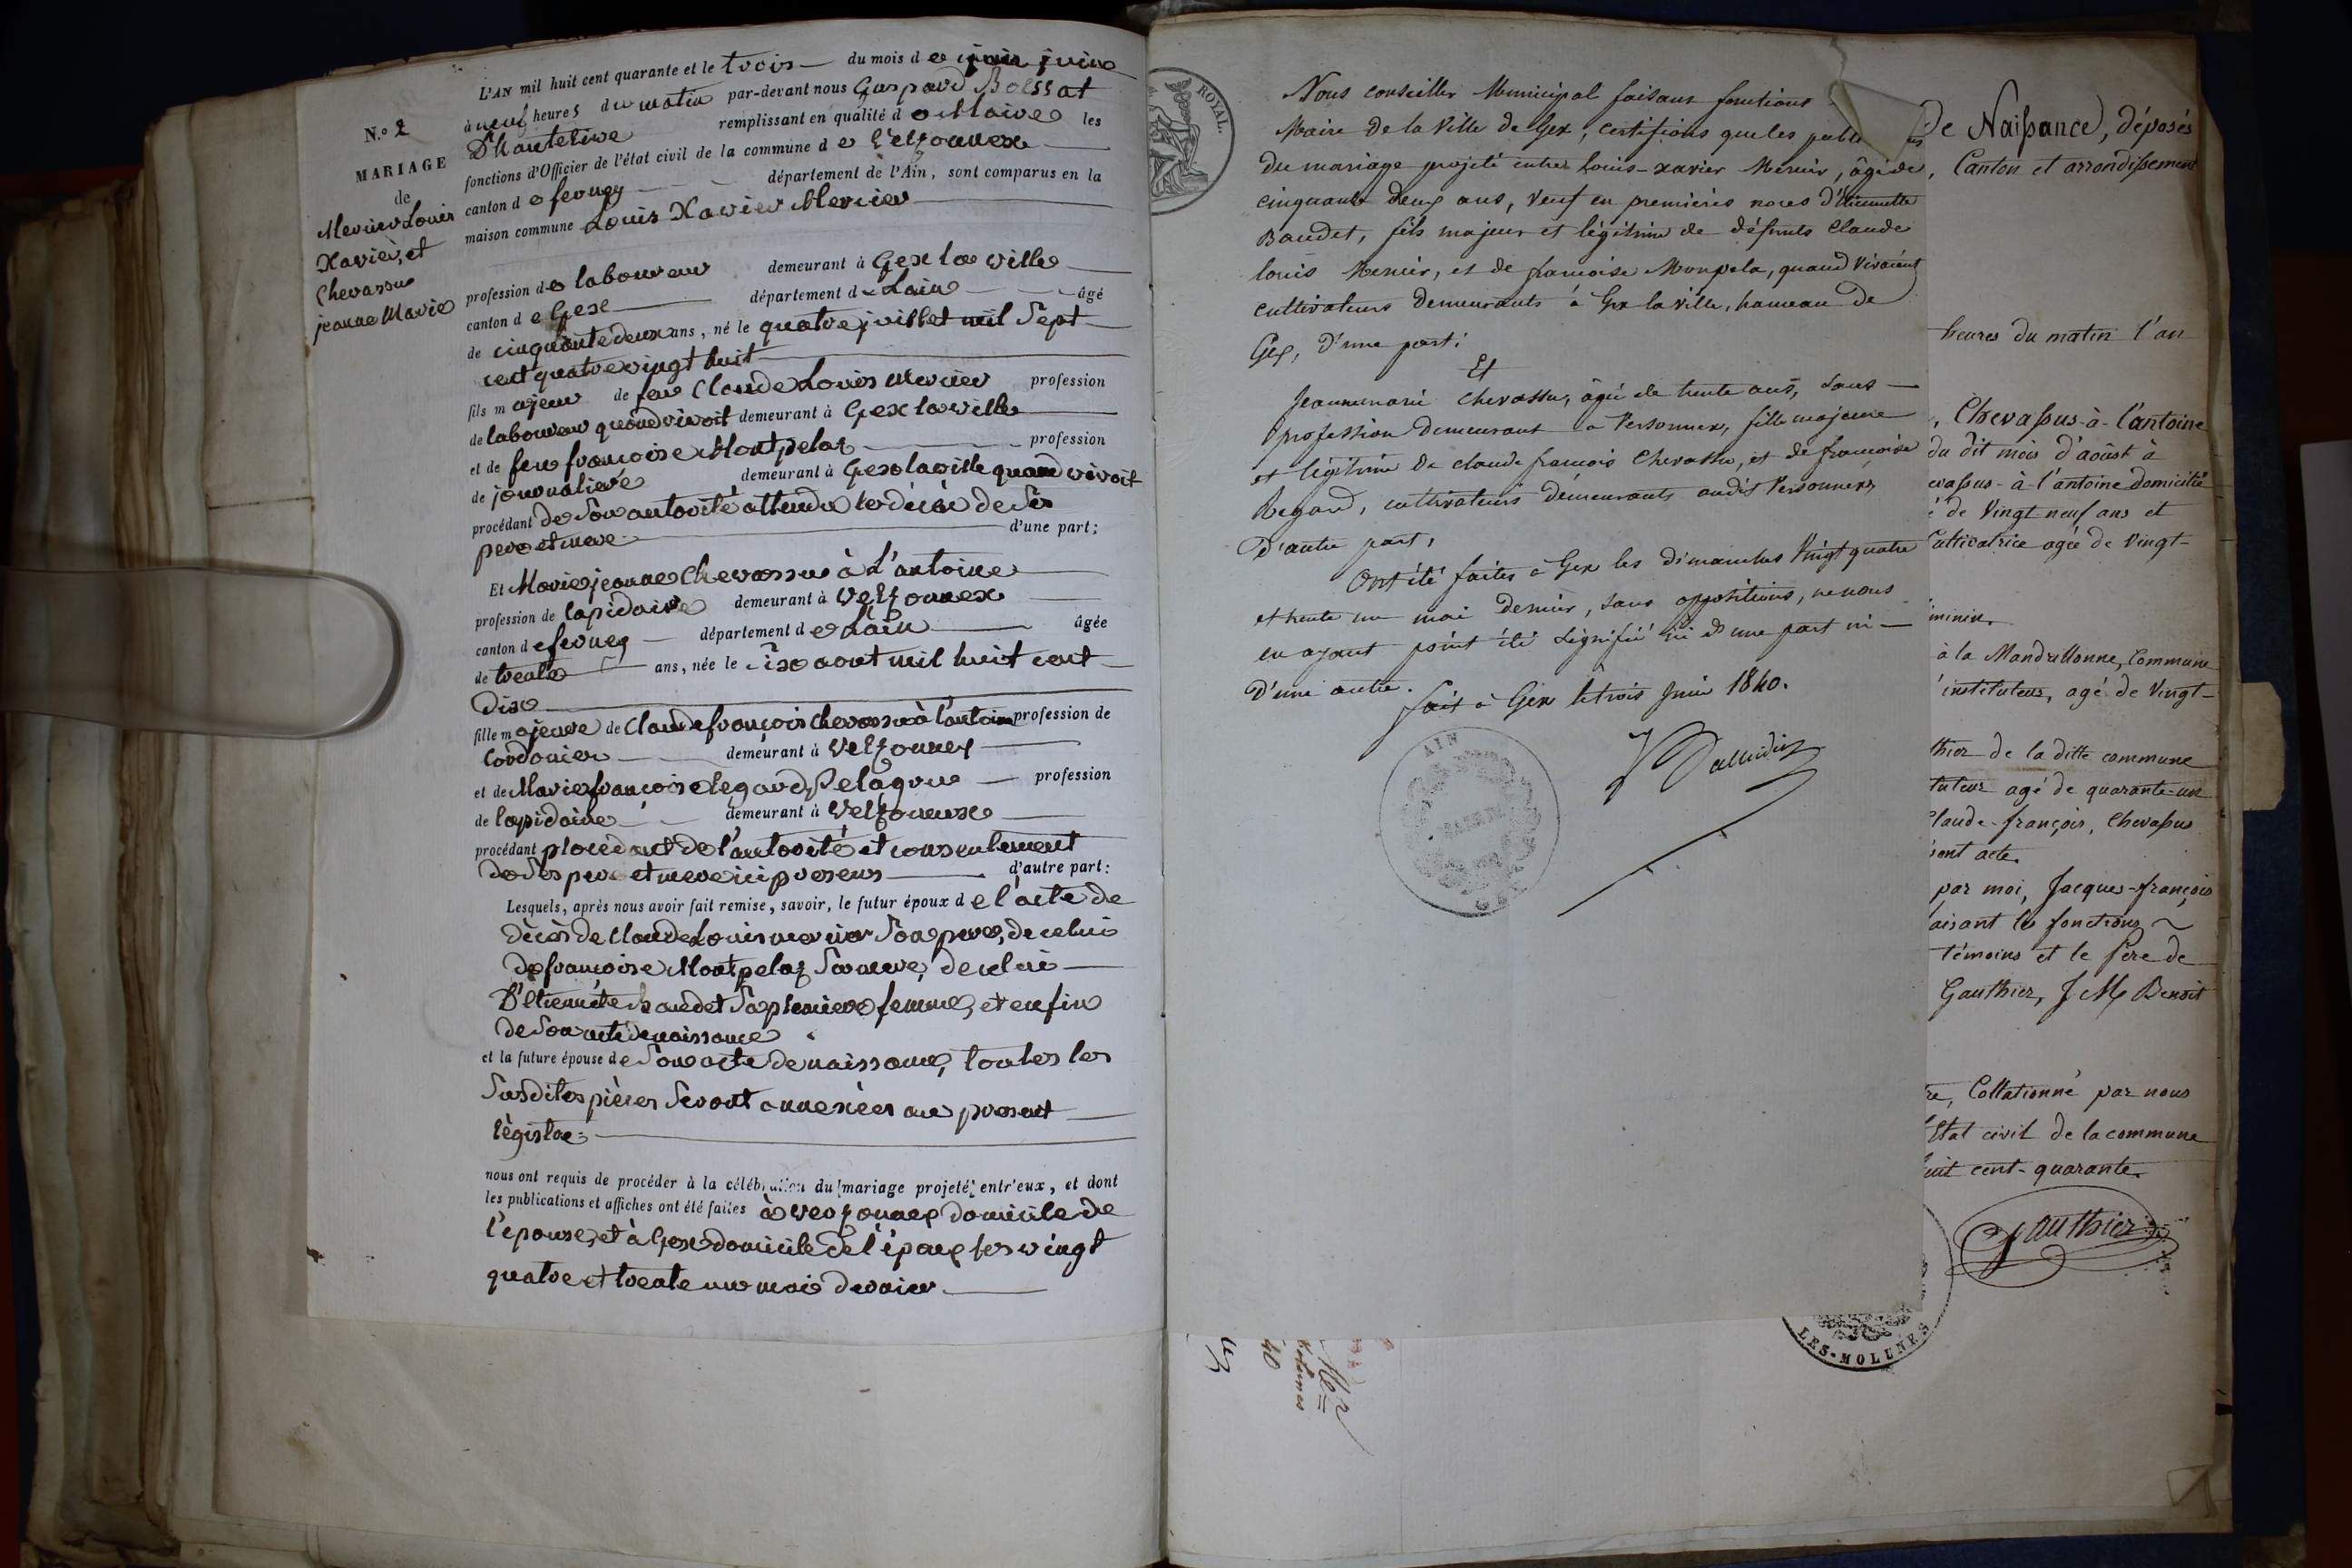 N.o 2
MARIAGE
de
Mercier Louis
Xavier, et
Chevassu
jeanne Marie
L'AN mil huit cent quarante et le trois du mois de juin
à neuf heures du matin par-devant nous Gaspard Boissat
D'hauterive remplissant en qualité de Maire les
fonctions d'Officier de l'état civil de la commune de Velzonnex
canton de ferney département de l'Ain, sont comparus en la
maison commune Louis Xavier Mercier
profession de laboureur demeurant à Gex la ville
canton de Gex département de Lain âgé
de cinquante deux ans, né le quatre juillet mil Sept
cent quatre vingt huit
fils majeur de feu Claude Louis Mercier profession
de laboureur quand vivoit demeurant à Gex la ville
et de feue francoise Montpelaz profession
de journaliere demeurant à Gex la ville quand vivoit
procédant de Son autorité attendu le décès de Ses
pere et mere d'une part;
Et Marie jeanne Chevassu à L'antoine
profession de lapidaire demeurant à Velzonnex
canton de ferney département de Lain âgée
de trente ans, née le Six aout mil huit cent
Dix
fille majeure de Claude françois Chevassu à l'antoine profession de
Cordonier demeurant à Velzonnex
et de Marie francoise Regard Pelagrue profession
de lapidaire demeurant à Velzonnex
procédant procédant de l'autorité et consentement
de Ses pere et mere ici presens d'autre part:
Lesquels, après nous avoir fait remise, savoir, le futur époux de l'acte de
décès de Claude Louis mercier Son pere, de celui
de francoise Montpelaz Sa mere, de celui
D'Etiennete Baudet Sa premiere femme, et enfin
de Son acte de naissance
et la future épouse de Son acte de naissance, toutes les
Susdites pièces Seront annexées au present
régistre.
nous ont requis de procéder à la célébration du mariage projeté entr'eux, et dont
les publications et affiches ont été faites à Verzonnex domicile de
l'épouse, et à Gex domicile de l'époux les vingt
quatre et trente un mai dernier
ROYAL.
Nous conseiller Municipal faisant fonctions
Maire de la Ville de Gex, certifions que les publ
du mariage projeté entre Louis-xavier Mercier, âgé de
cinquante deux ans, veuf en premières noces d'Etiennette
Baudet, fils majeur et légitime de défunts Claude
louis Mercier, et de francoise Monpela, quand vivaient
cultivateurs demeurants à Gex la ville, hameau de
Gex, d'une part;
Et
Jeannemarie Chevassu, âgée de trente ans, sans
profession demeurant à Versonnex, fille majeure
et légitime de claude françois Chevassu, et de francoise
Regard, cultivateurs demeurants audit Versonnex,
d'autre part,
Ont été faites à Gex les dimanches Vingt quatre
et trente un mai dernier, sans oppositions, ne nous
en ayant point été signifié ni d'une part ni
d'une autre.
fait à Gex le trois Juin 1840.
AIN
de Naissance, déposés
, Canton et arrondissement
heures du matin l'an
, Chevassus-à-l'antoine
du dit mois d'août à
evassus-à-l'antoine domicilié
é de Vingt neuf ans et
Cultivatrice agée de Vingt-
iminin.
à la Mandrillonne, Commune
instituteur, agé de Vingt-
thier de la ditte commune
tuteur agé de quarante-un
Claude-françois, Chevassus
sent acte.
par moi, Jacques-françois
aisant les fonctions
témoins et le Père de
Gauthier, J M Benoit
re, Collationné par nous
Etat civil de la commune
uit cent-quarante.
Gauthier
LES-MOLUNES
40